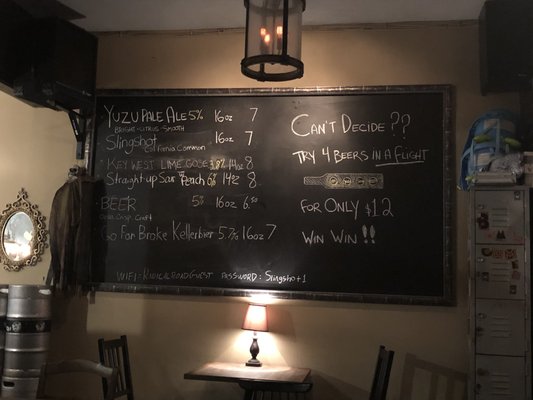 YUZU PALE ALE 5% 16oz 7
BRIGHT-CITRUS SMOOTH
Slingshot 16oz 7
California Common
KEY WEST LIME GOSE 3.8% 14oz 8
Straight up Sour Peach 6% 14oz 8
BEER 5% 16oz 6.50
Crisp. Craft
Go For Broke Kellerbier 5.7% 16oz 7
WIFI: RIDICALROADGUEST PASSWORD: Slingshot1
CAN'T DECIDE ??
TRY 4 BEERS IN A FLIGHT
FOR ONLY $12
WIN WIN !!